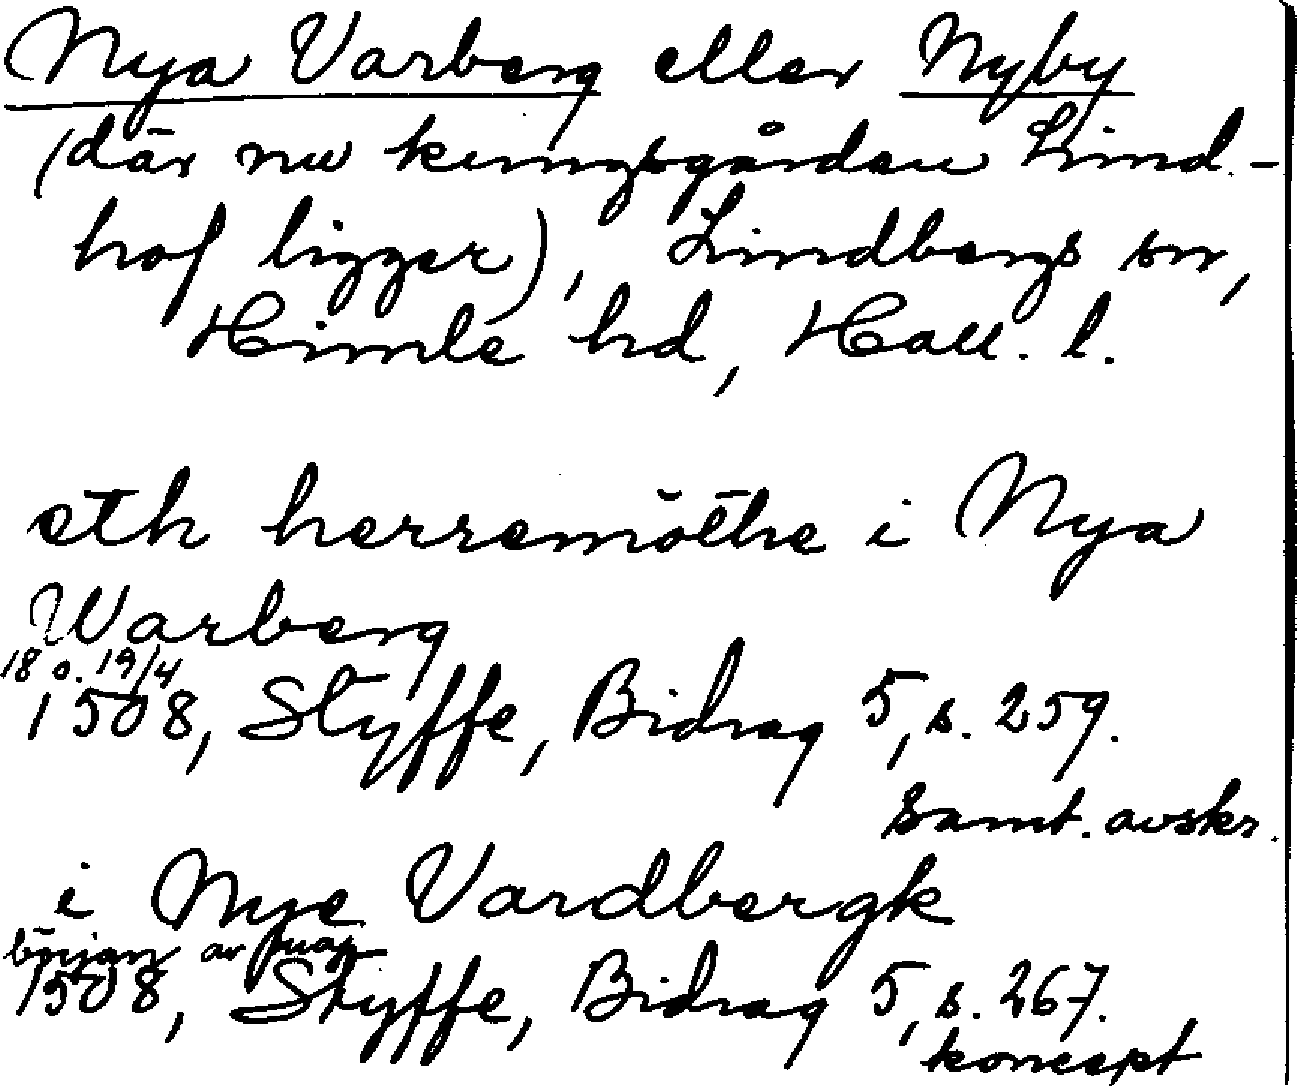 Nya Varberg eller Nyby
(där nu kungsgården Lind-
hof ligger), Lindbergs sn,
Himle hd, Hall. l.
eth herremöthe i Nya
Warberg
18 o. 19/4
1508, Styffe, Bidrag 5, s. 259.
samt. avskr.
i Nye Vardbergk
början av maj
1508, Styffe, Bidrag 5, s. 267.
koncept